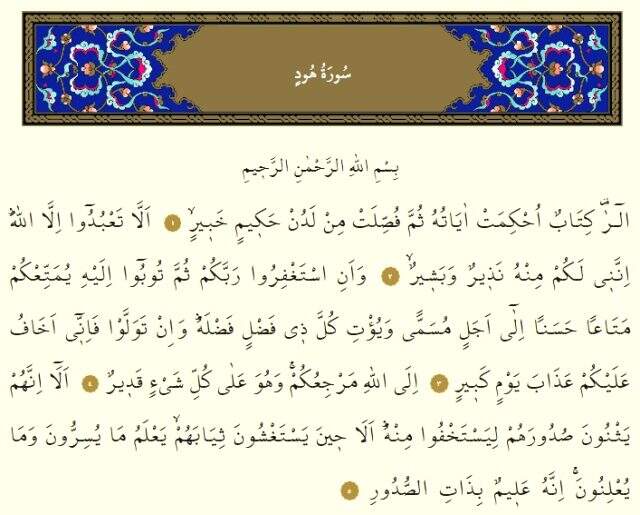 سُورَةُ هُودٍ
بِسْمِ اللهِ الرَّحْمٰنِ الرَّحٖيمِ
الٓرٰ۠ كِتَابٌ اُحْكِمَتْ اٰيَاتُهُ ثُمَّ فُصِّلَتْ مِنْ لَدُنْ حَكٖيمٍ خَبٖيرٍۙ ﴿١﴾ اَلَّا تَعْبُدُٓوا اِلَّا اللهَؕ
اِنَّنٖي لَكُمْ مِنْهُ نَذٖيرٌ وَبَشٖيرٌۙ ﴿٢﴾ وَاَنِ اسْتَغْفِرُوا رَبَّكُمْ ثُمَّ تُوبُٓوا اِلَيْهِ يُمَتِّعْكُمْ
مَتَاعًا حَسَنًا اِلٰٓى اَجَلٍ مُسَمًّى وَيُؤْتِ كُلَّ ذٖي فَضْلٍ فَضْلَهُؕ وَاِنْ تَوَلَّوْا فَاِنّٖٓي اَخَافُ
عَلَيْكُمْ عَذَابَ يَوْمٍ كَبٖيرٍ ﴿٣﴾ اِلَى اللهِ مَرْجِعُكُمْۚ وَهُوَ عَلٰى كُلِّ شَيْءٍ قَدٖيرٌ ﴿٤﴾ اَلَٓا اِنَّهُمْ
يَثْنُونَ صُدُورَهُمْ لِيَسْتَخْفُوا مِنْهُؕ اَلَا حٖينَ يَسْتَغْشُونَ ثِيَابَهُمْۙ يَعْلَمُ مَا يُسِرُّونَ وَمَا
يُعْلِنُونَۚ اِنَّهُ عَلٖيمٌ بِذَاتِ الصُّدُورِ ﴿٥﴾